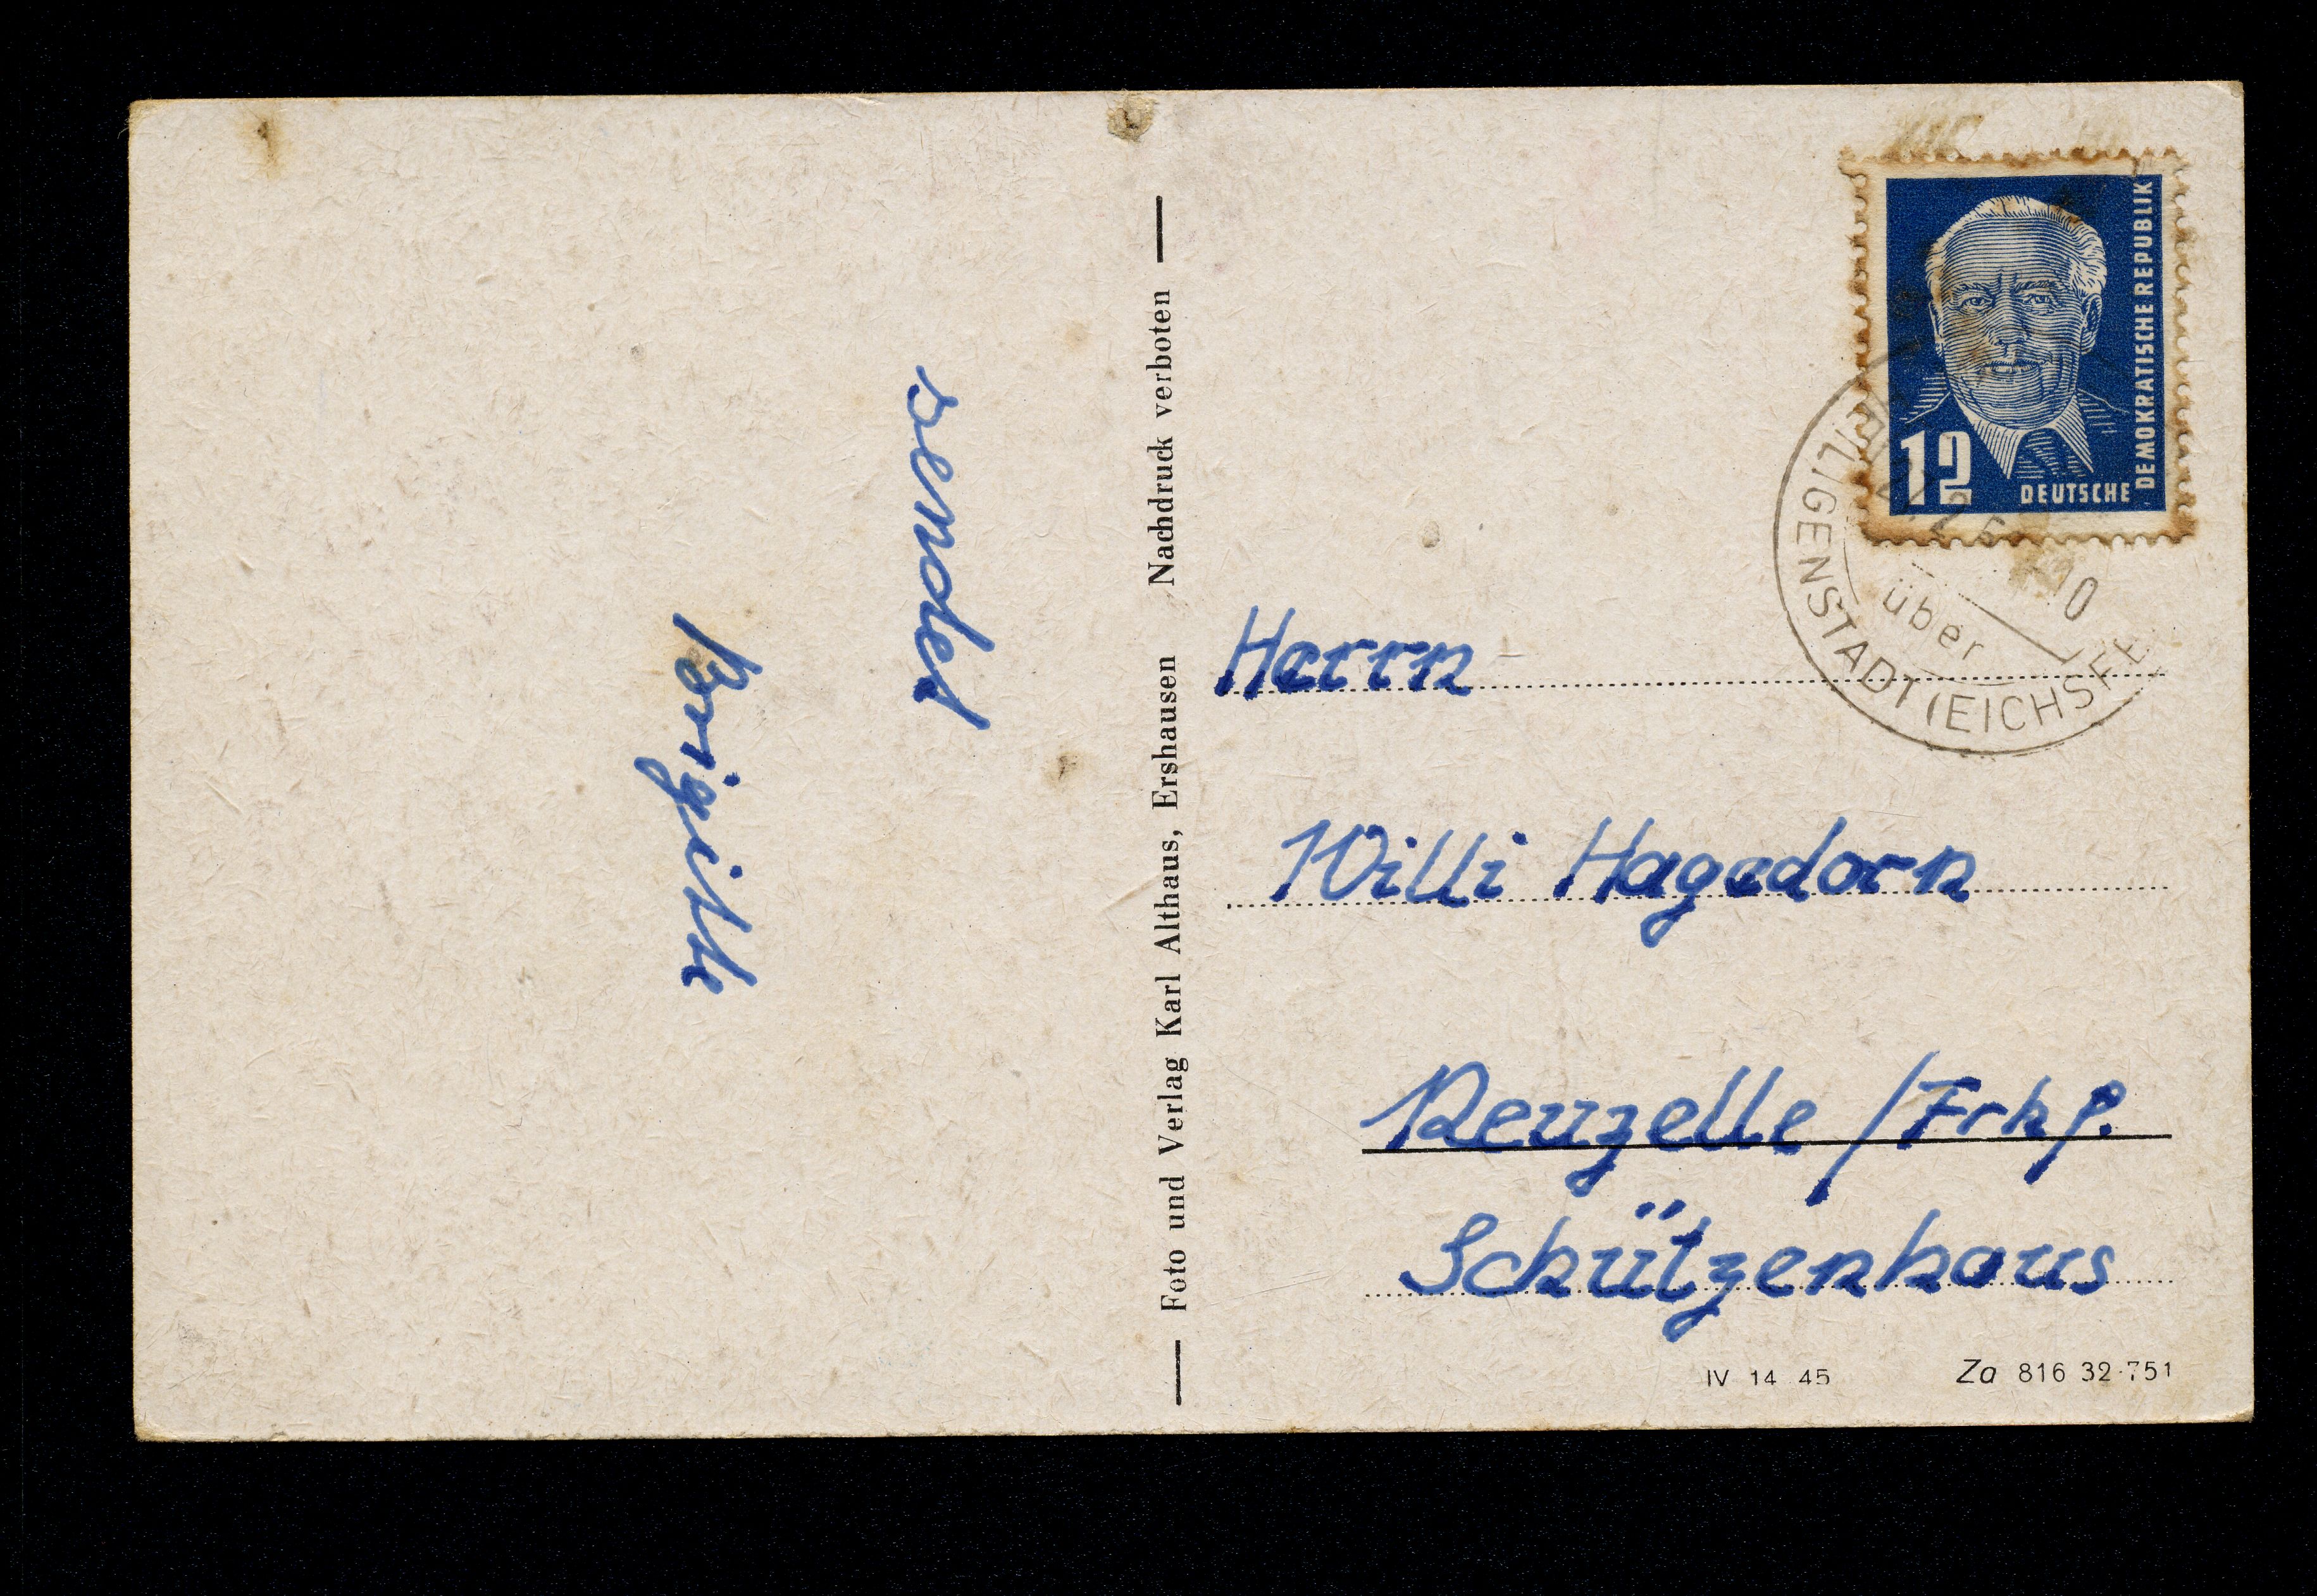 sendet
Brigitte
Foto und Verlag Karl Althaus, Ershausen Nachdruck verboten
12
DEUTSCHE
DEMOKRATISCHE REPUBLIK
über
HEILIGENSTADT (EICHSFE
Herrn
Willi Hagedorn
Neuzelle / Frkf.
Schützenhaus
IV 14 45 Za 816 32 751